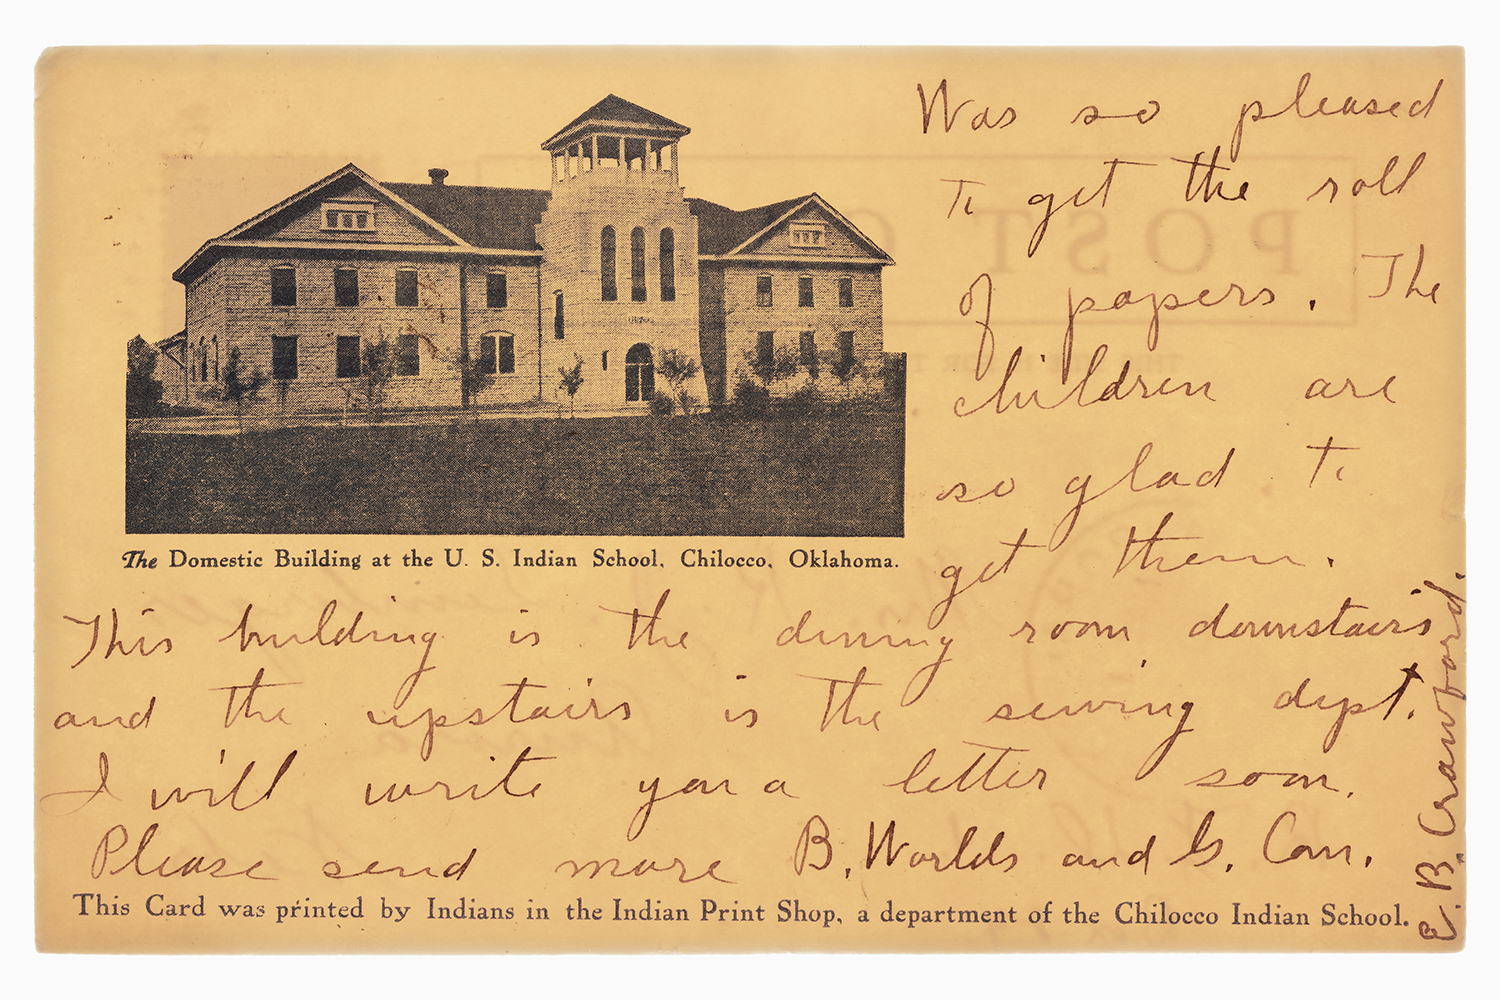 Was so pleased
to get the roll
of papers. The
children are
so glad to
get them.
The Domestic Building at the U. S. Indian School, Chilocco, Oklahoma.
This building is the dining room downstairs
and the upstairs is the sewing dept.
I will write you a letter soon.
Please send more B. Worlds and G. Com.
E. B. Crawford.
This Card was printed by Indians in the Indian Print Shop, a department of the Chilocco Indian School.